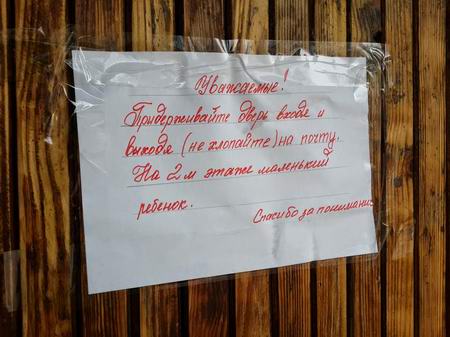 Уважаемые!
Придерживайте дверь входя и
выходя (не хлопайте) на почту.
На 2м этаже маленький
ребенок.
Спасибо за понимание